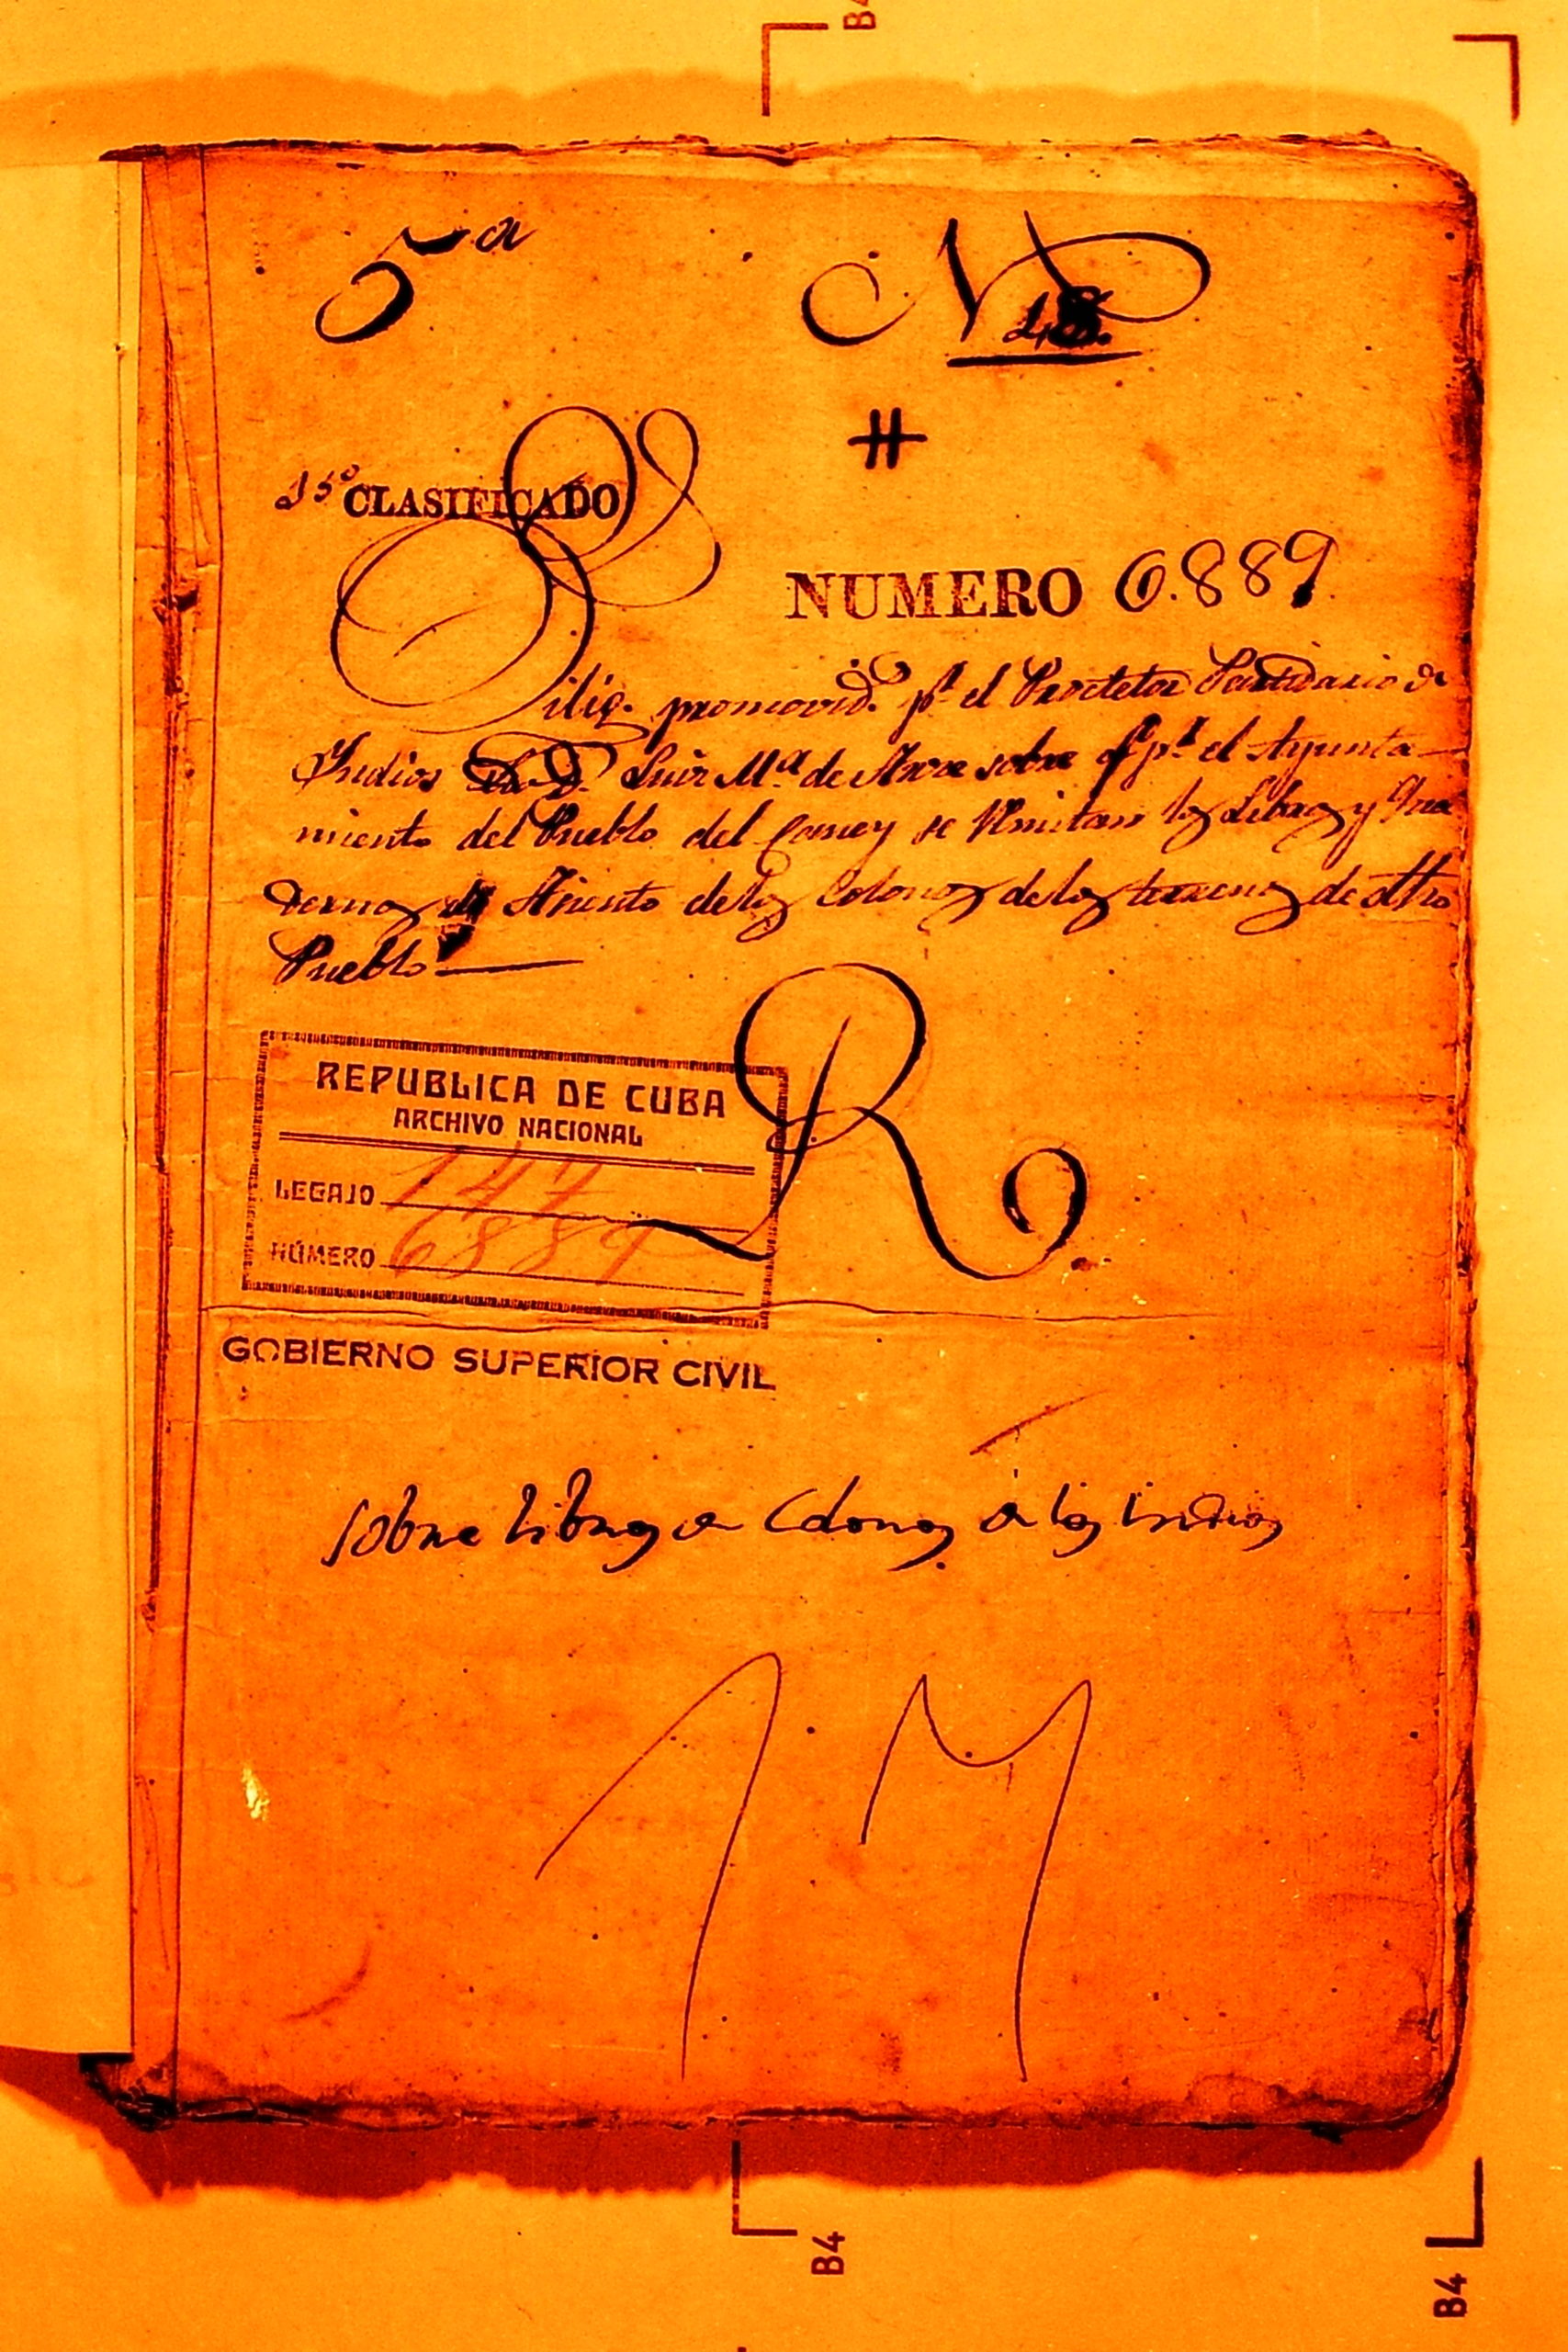 5ª
N 48.
#
15º CLASIFICADO
NUMERO 6.889
Dilig. promovid. pr. el Protetor Partidario de
Indios Luis Mª. de sobre q. pr. el Ayunta
miento del Pueblo del Caney se Rmitan los Libros y Qua
dernos de Asiento de los Colonos de los terrenos de dho
Pueblo
R
REPUBLICA DE CUBA
ARCHIVO NACIONAL
LEGAJO 147
NÚMERO 6889
GOBIERNO SUPERIOR CIVIL
Sobre Libros de Colonos a los Indios
B4
B4
B4